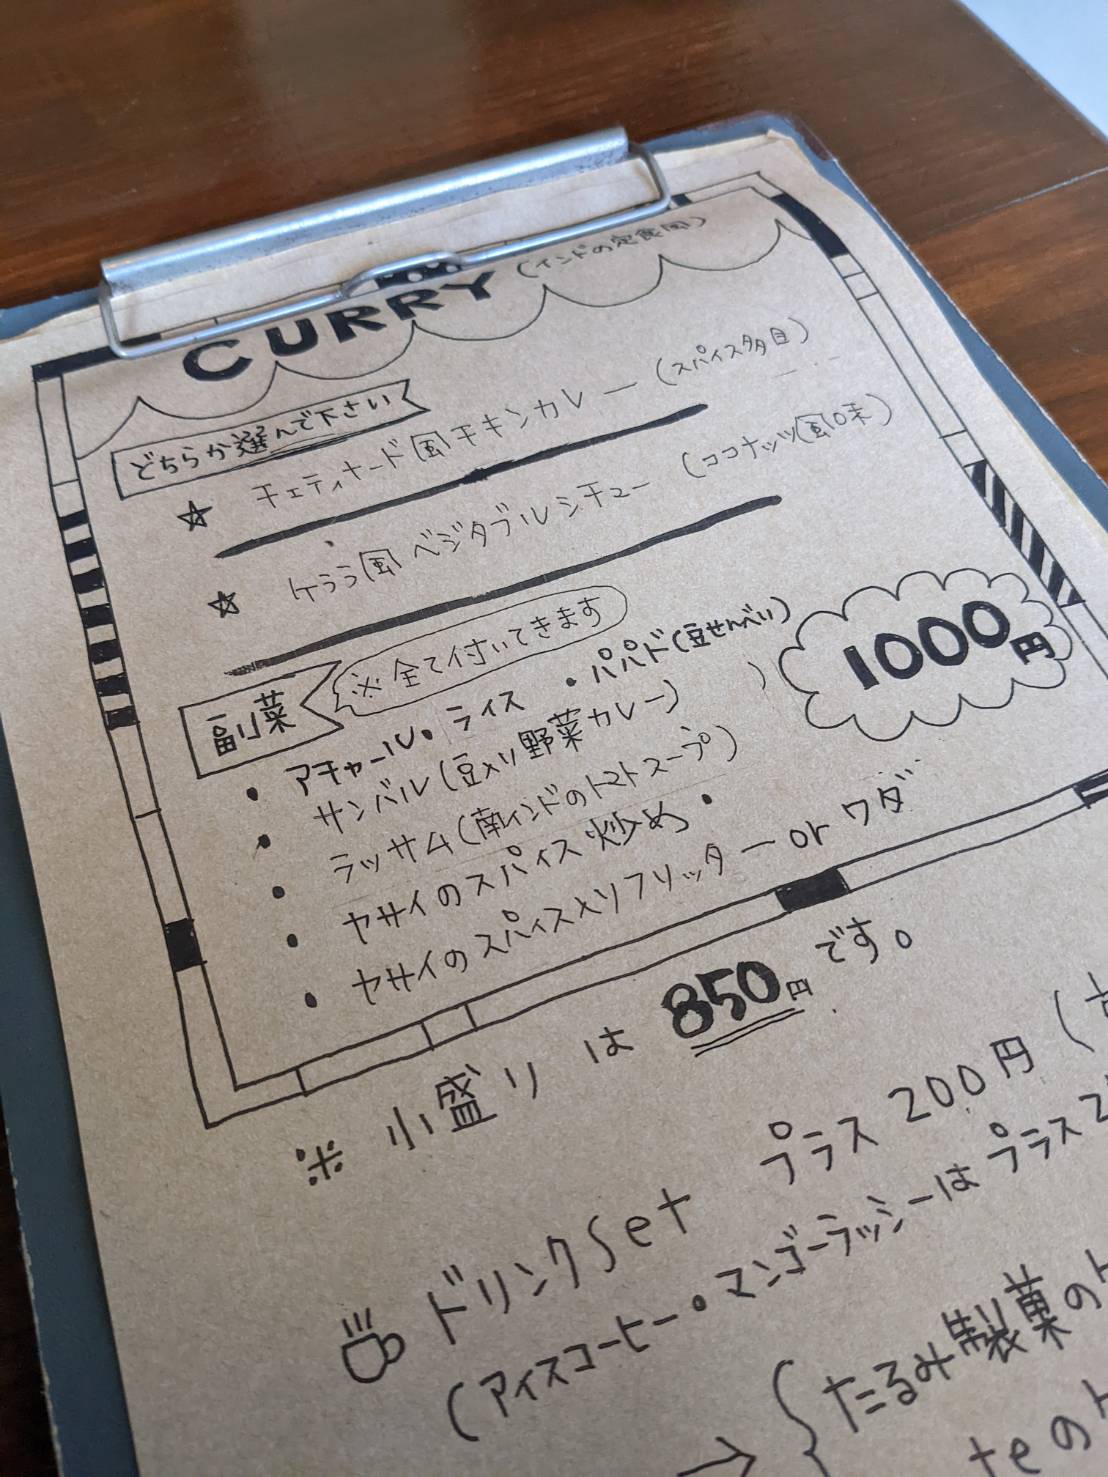 CURRY (インドの定食風)
どちらか選んで下さい
☆ チェティナード風チキンカレー (スパイス多目)
☆ ケララ風ベジタブルシチュー (ココナッツ風味)
副菜 ※全て付いてきます
1000円
・アチャール・ライス ・パパド(豆せんべい)
・サンバル(豆入り野菜カレー)
・ラッサム(南インドのトマトスープ)
・ヤサイのスパイス炒め・
・ヤサイのスパイス入りフリッター or ワダ
※ 小盛り は 850円 です。
ドリンクSet プラス 200円 (
(アイスコーヒー・マンゴーラッシーはプラス2
→ { たるみ製菓の
teの